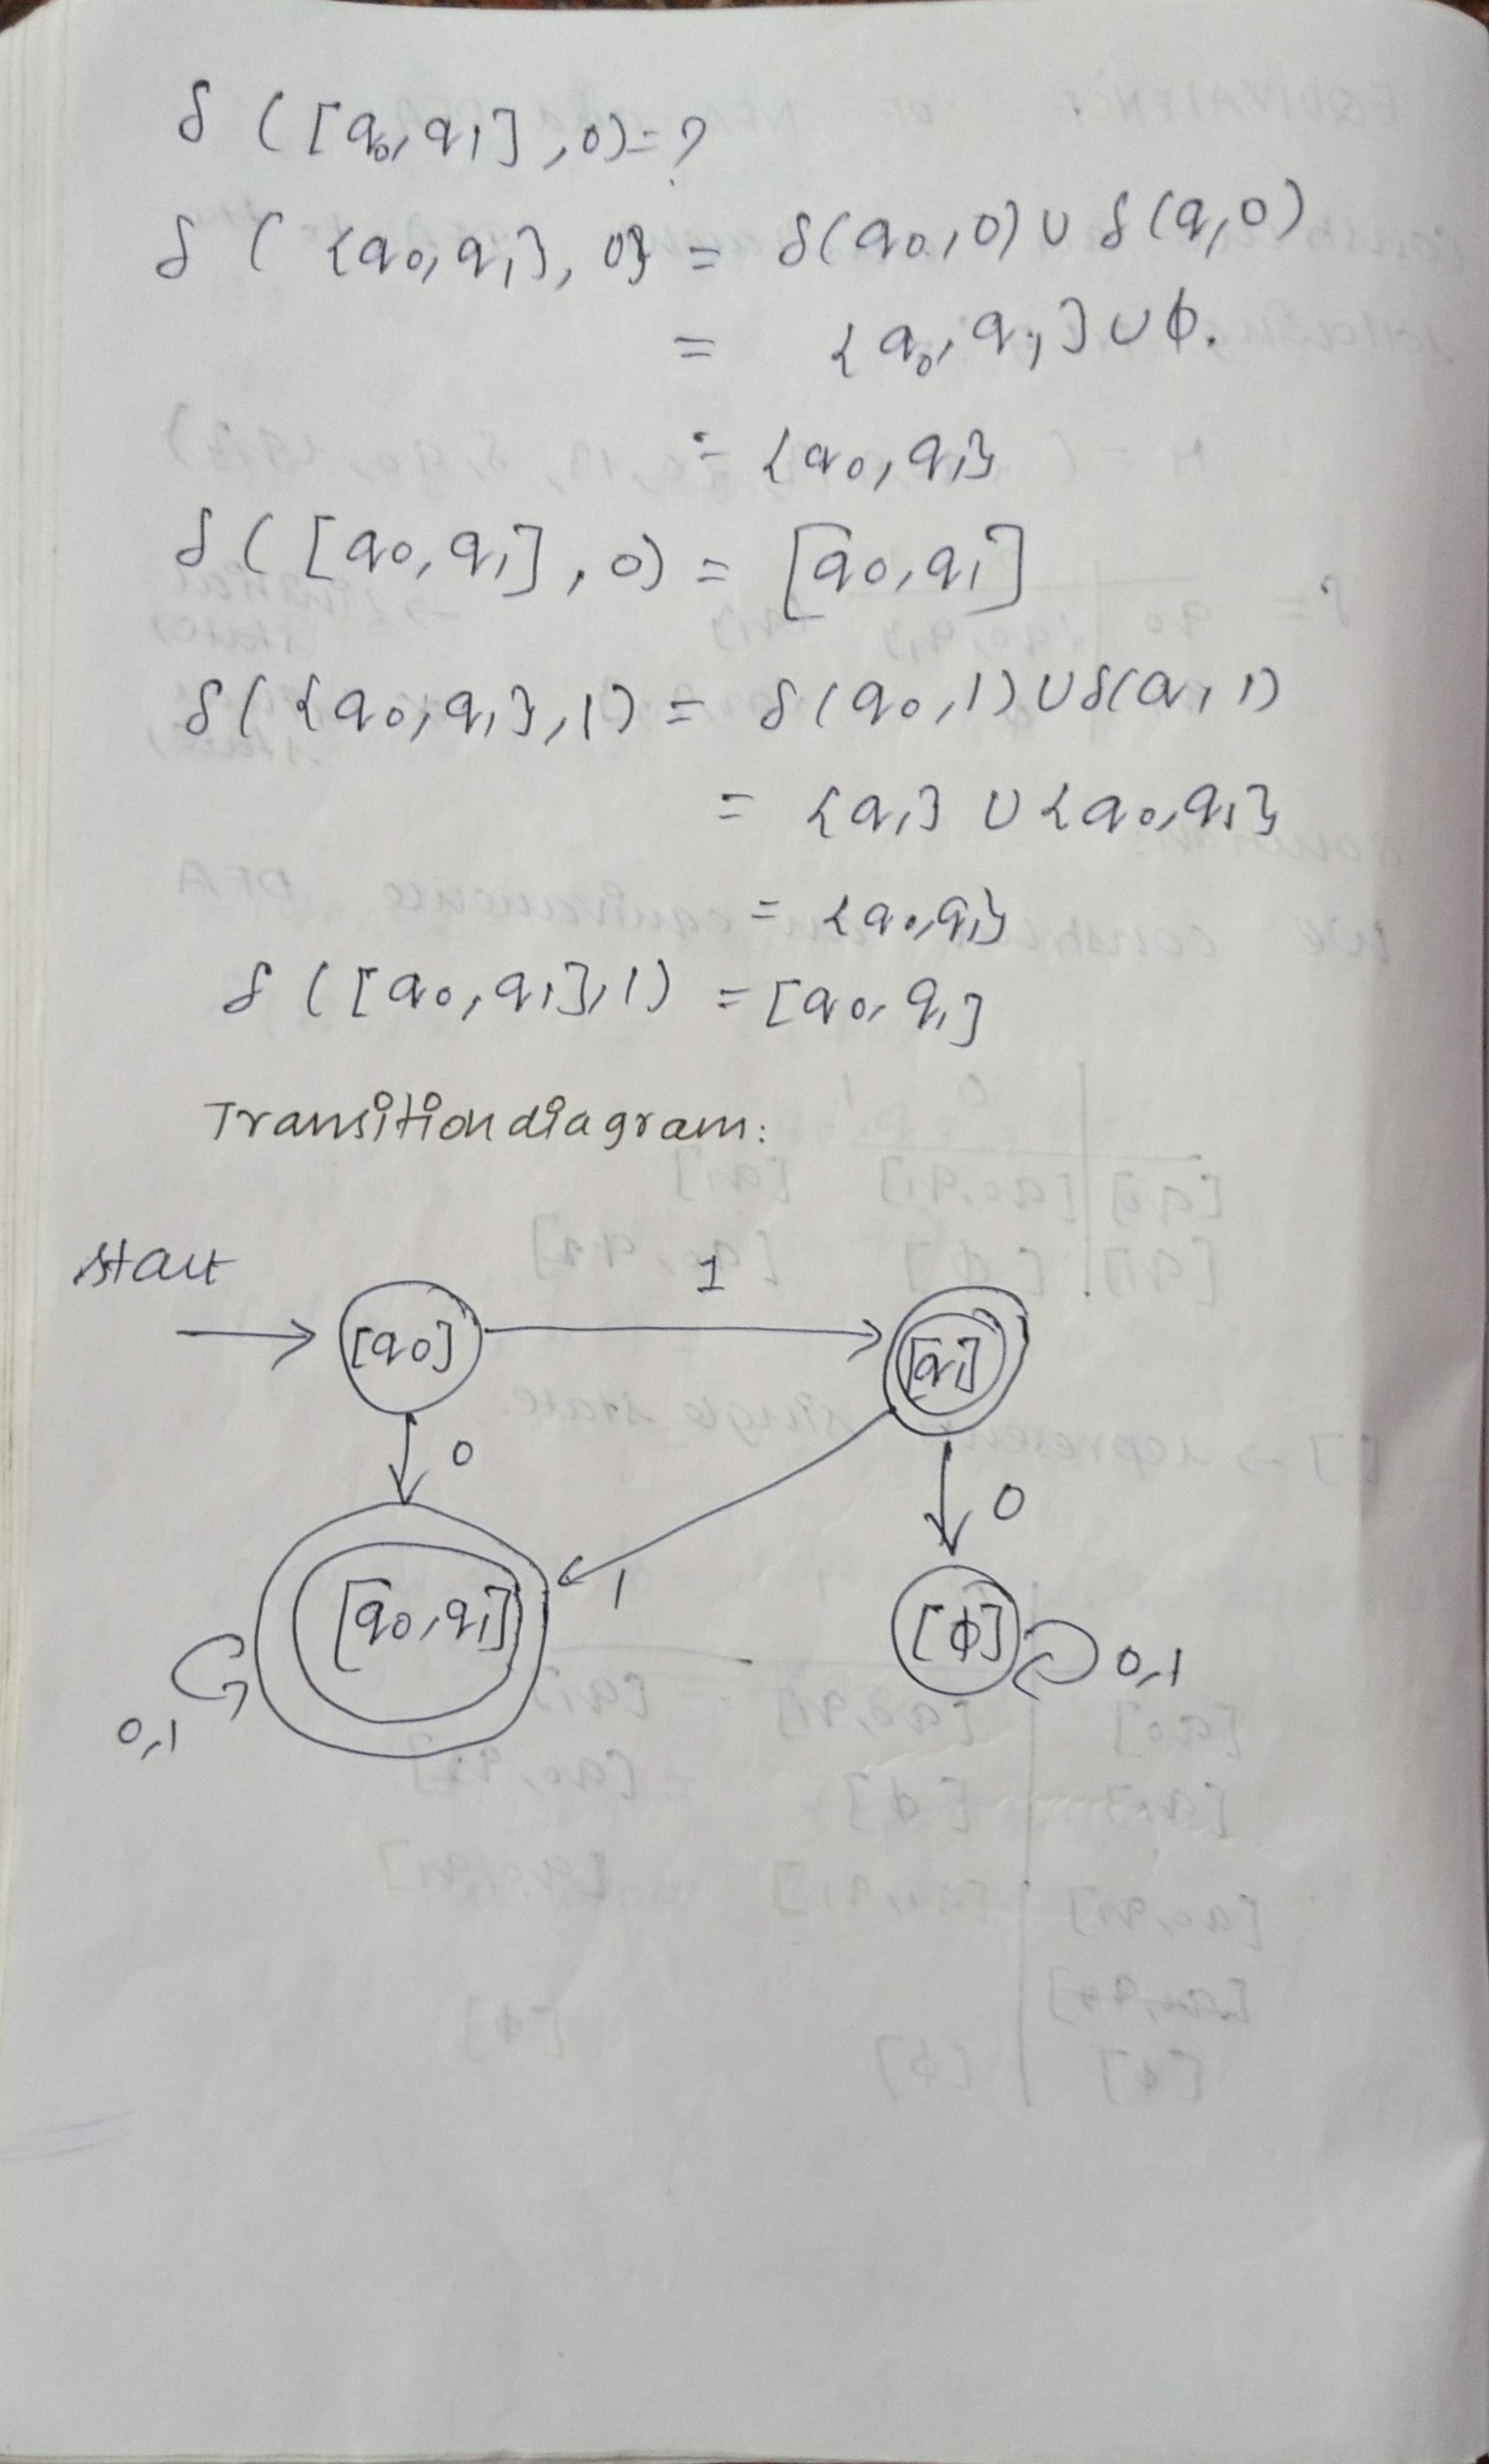 δ ([q0,q1],0)=?
δ ({q0,q1},0} = δ(q0,0) ∪ δ(q,0)
= {q0,q1} ∪ ϕ.
= {q0,q1}
δ([q0,q1],0) = [q0,q1]
δ({q0,q1},1) = δ(q0,1) ∪ δ(q,1)
= {q1} ∪ {q0,q1}
= {q0,q1}
δ([q0,q1],1) = [q0,q1]
Transition diagram:
start
1
[q0]
[q1]
0
0
1
[q0,q1]
[ϕ]
0,1
0,1